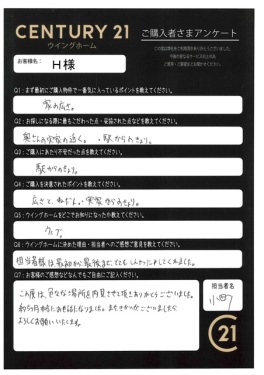 CENTURY 21
ウイングホーム
ご購入者さまアンケート
お客様名：
H様
Q1：まず最初にご購入物件で一番気に入っているポイントを教えてください。
家の広さ。
Q2：お探しになる際に最もこだわった点・妥協された点などを教えてください。
奥さんの実家の近く。・駅からのきょり。
Q3：ご購入にあたり不安だった点を教えてください。
駅からのきょり。
Q4：ご購入を決意されたポイントを教えてください。
広さと、ねだん、実家からのきょり。
Q5：ウイングホームをどこでお知りになったか教えてください。
Q6：ウイングホームに決めた理由・担当者へのご感想ご意見を教えてください。
担当者様は最初から最後まで、とても してくれました。
Q7：お客様のご感想などなんでもご自由にご記入ください。
この度は、色々な場所を内見させて頂きありがとうございました。
約5ヶ月もお世話になりました。またきかいございましたら
よろしくお願いいたします。
担当者名
C21